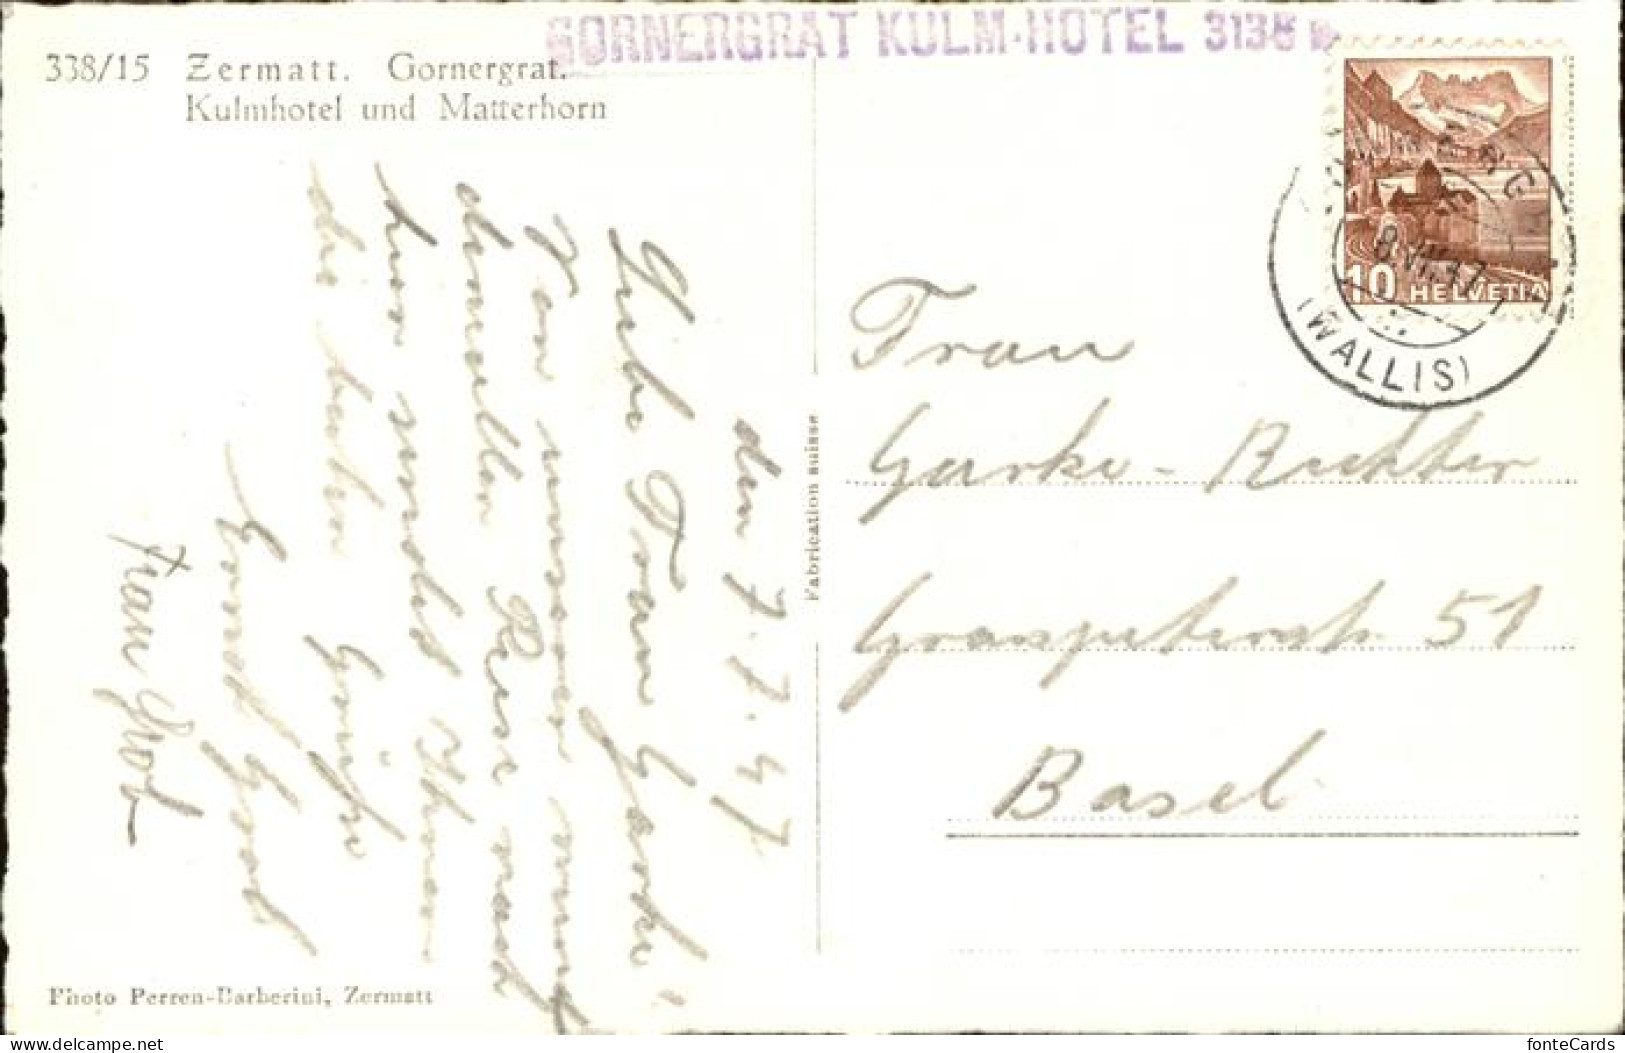 GORNERGRAT KULM-HOTEL 3138 m
338/15 Zermatt. Gornergrat.
Kulmhotel und Matterhorn
10 HELVETIA
8.VII.47
(WALLIS)
den 7. 7. 47
Liebe Frau Garke!
Von unserer wunder
Reise nach
sendet Ihnen
die besten Grüsse
Ernst Grob
Frau Grob
Fabrication suisse
Frau
Garke-Richter
Grospeterstr. 51
Basel
Photo Perren-Barberini, Zermatt
fonteCards